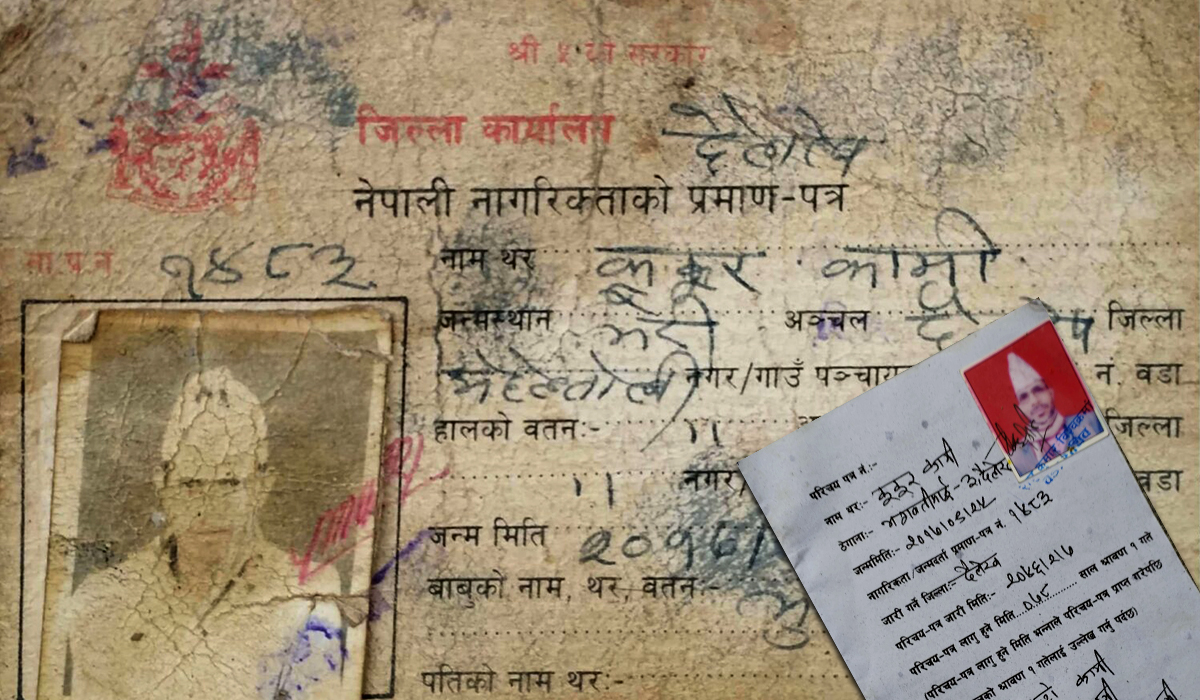 श्री ५ को सरकार
जिल्ला कार्यालय दैलेख
नेपाली नागरिकताको प्रमाण-पत्र
ना.प्र.न. १४८३
नाम थर कूकूर कामी
जन्मस्थान भेरी अञ्चल जिल्ला
नगर/गाउँ पञ्चायत नं. वडा
हालको वतन:- ,, जिल्ला
,, नगर/ वडा
जन्म मिति २०१७/
बाबुको नाम, थर, वतन:-
पतिको नाम थर:-
परिचय पत्र नं.:-
नाम थर:- कूकूर कामी
ठेगाना:- भगवतीमाई-
जन्ममिति:- २०१७/०५/२४
नागरिकता/जन्मदर्ता प्रमाण-पत्र नं. १४८३
जारी गर्ने जिल्ला:- दैलेख
परिचय-पत्र जारी मिति:- २०७६/२/७
परिचय-पत्र लागु हुने मिति साल श्रावण १ गते
(परिचय-पत्र लागु हुने मिति भन्नाले परिचय-पत्र प्राप्त गरेपछि
श्रावण १ गतेलाई उल्लेख गर्नु पर्वछ)
कामी